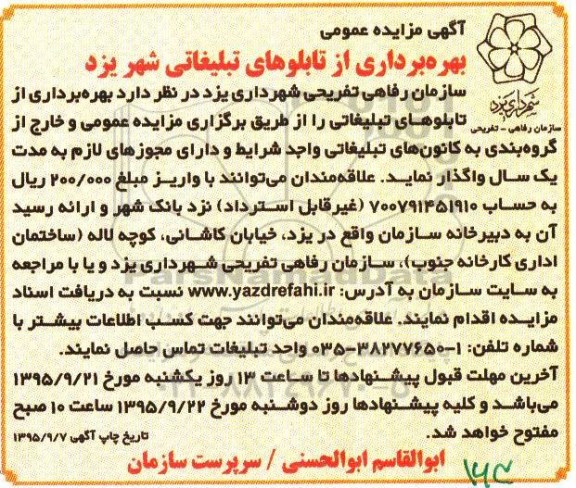 آگهی مزایده عمومی
بهره‌برداری از تابلوهای تبلیغاتی شهر یزد
شهرداری یزد
سازمان رفاهی - تفریحی
سازمان رفاهی تفریحی شهرداری یزد در نظر دارد بهره‌برداری از
تابلوهای تبلیغاتی را از طریق برگزاری مزایده عمومی و خارج از
گروه‌بندی به کانون‌های تبلیغاتی واجد شرایط و دارای مجوزهای لازم به مدت
یک سال واگذار نماید. علاقه‌مندان می‌توانند با واریز مبلغ ۲۰۰/۰۰۰ ریال
به حساب ۷۰۰۷۹۱۴۵۱۹۱۰ (غیرقابل استرداد) نزد بانک شهر و ارائه رسید
آن به دبیرخانه سازمان واقع در یزد، خیابان کاشانی، کوچه لاله (ساختمان
اداری کارخانه جنوب)، سازمان رفاهی تفریحی شهرداری یزد و یا با مراجعه
به سایت سازمان به آدرس: www.yazdrefahi.ir نسبت به دریافت اسناد
مزایده اقدام نمایند. علاقه‌مندان می‌توانند جهت کسب اطلاعات بیشتر با
شماره تلفن: ۱-۳۸۲۷۷۶۵۰-۰۳۵ واحد تبلیغات تماس حاصل نمایند.
آخرین مهلت قبول پیشنهادها تا ساعت ۱۳ روز یکشنبه مورخ ۱۳۹۵/۹/۲۱
می‌باشد و کلیه پیشنهادها روز دوشنبه مورخ ۱۳۹۵/۹/۲۲ ساعت ۱۰ صبح
مفتوح خواهد شد.
تاریخ چاپ آگهی ۱۳۹۵/۹/۷
ابوالقاسم ابوالحسنی / سرپرست سازمان